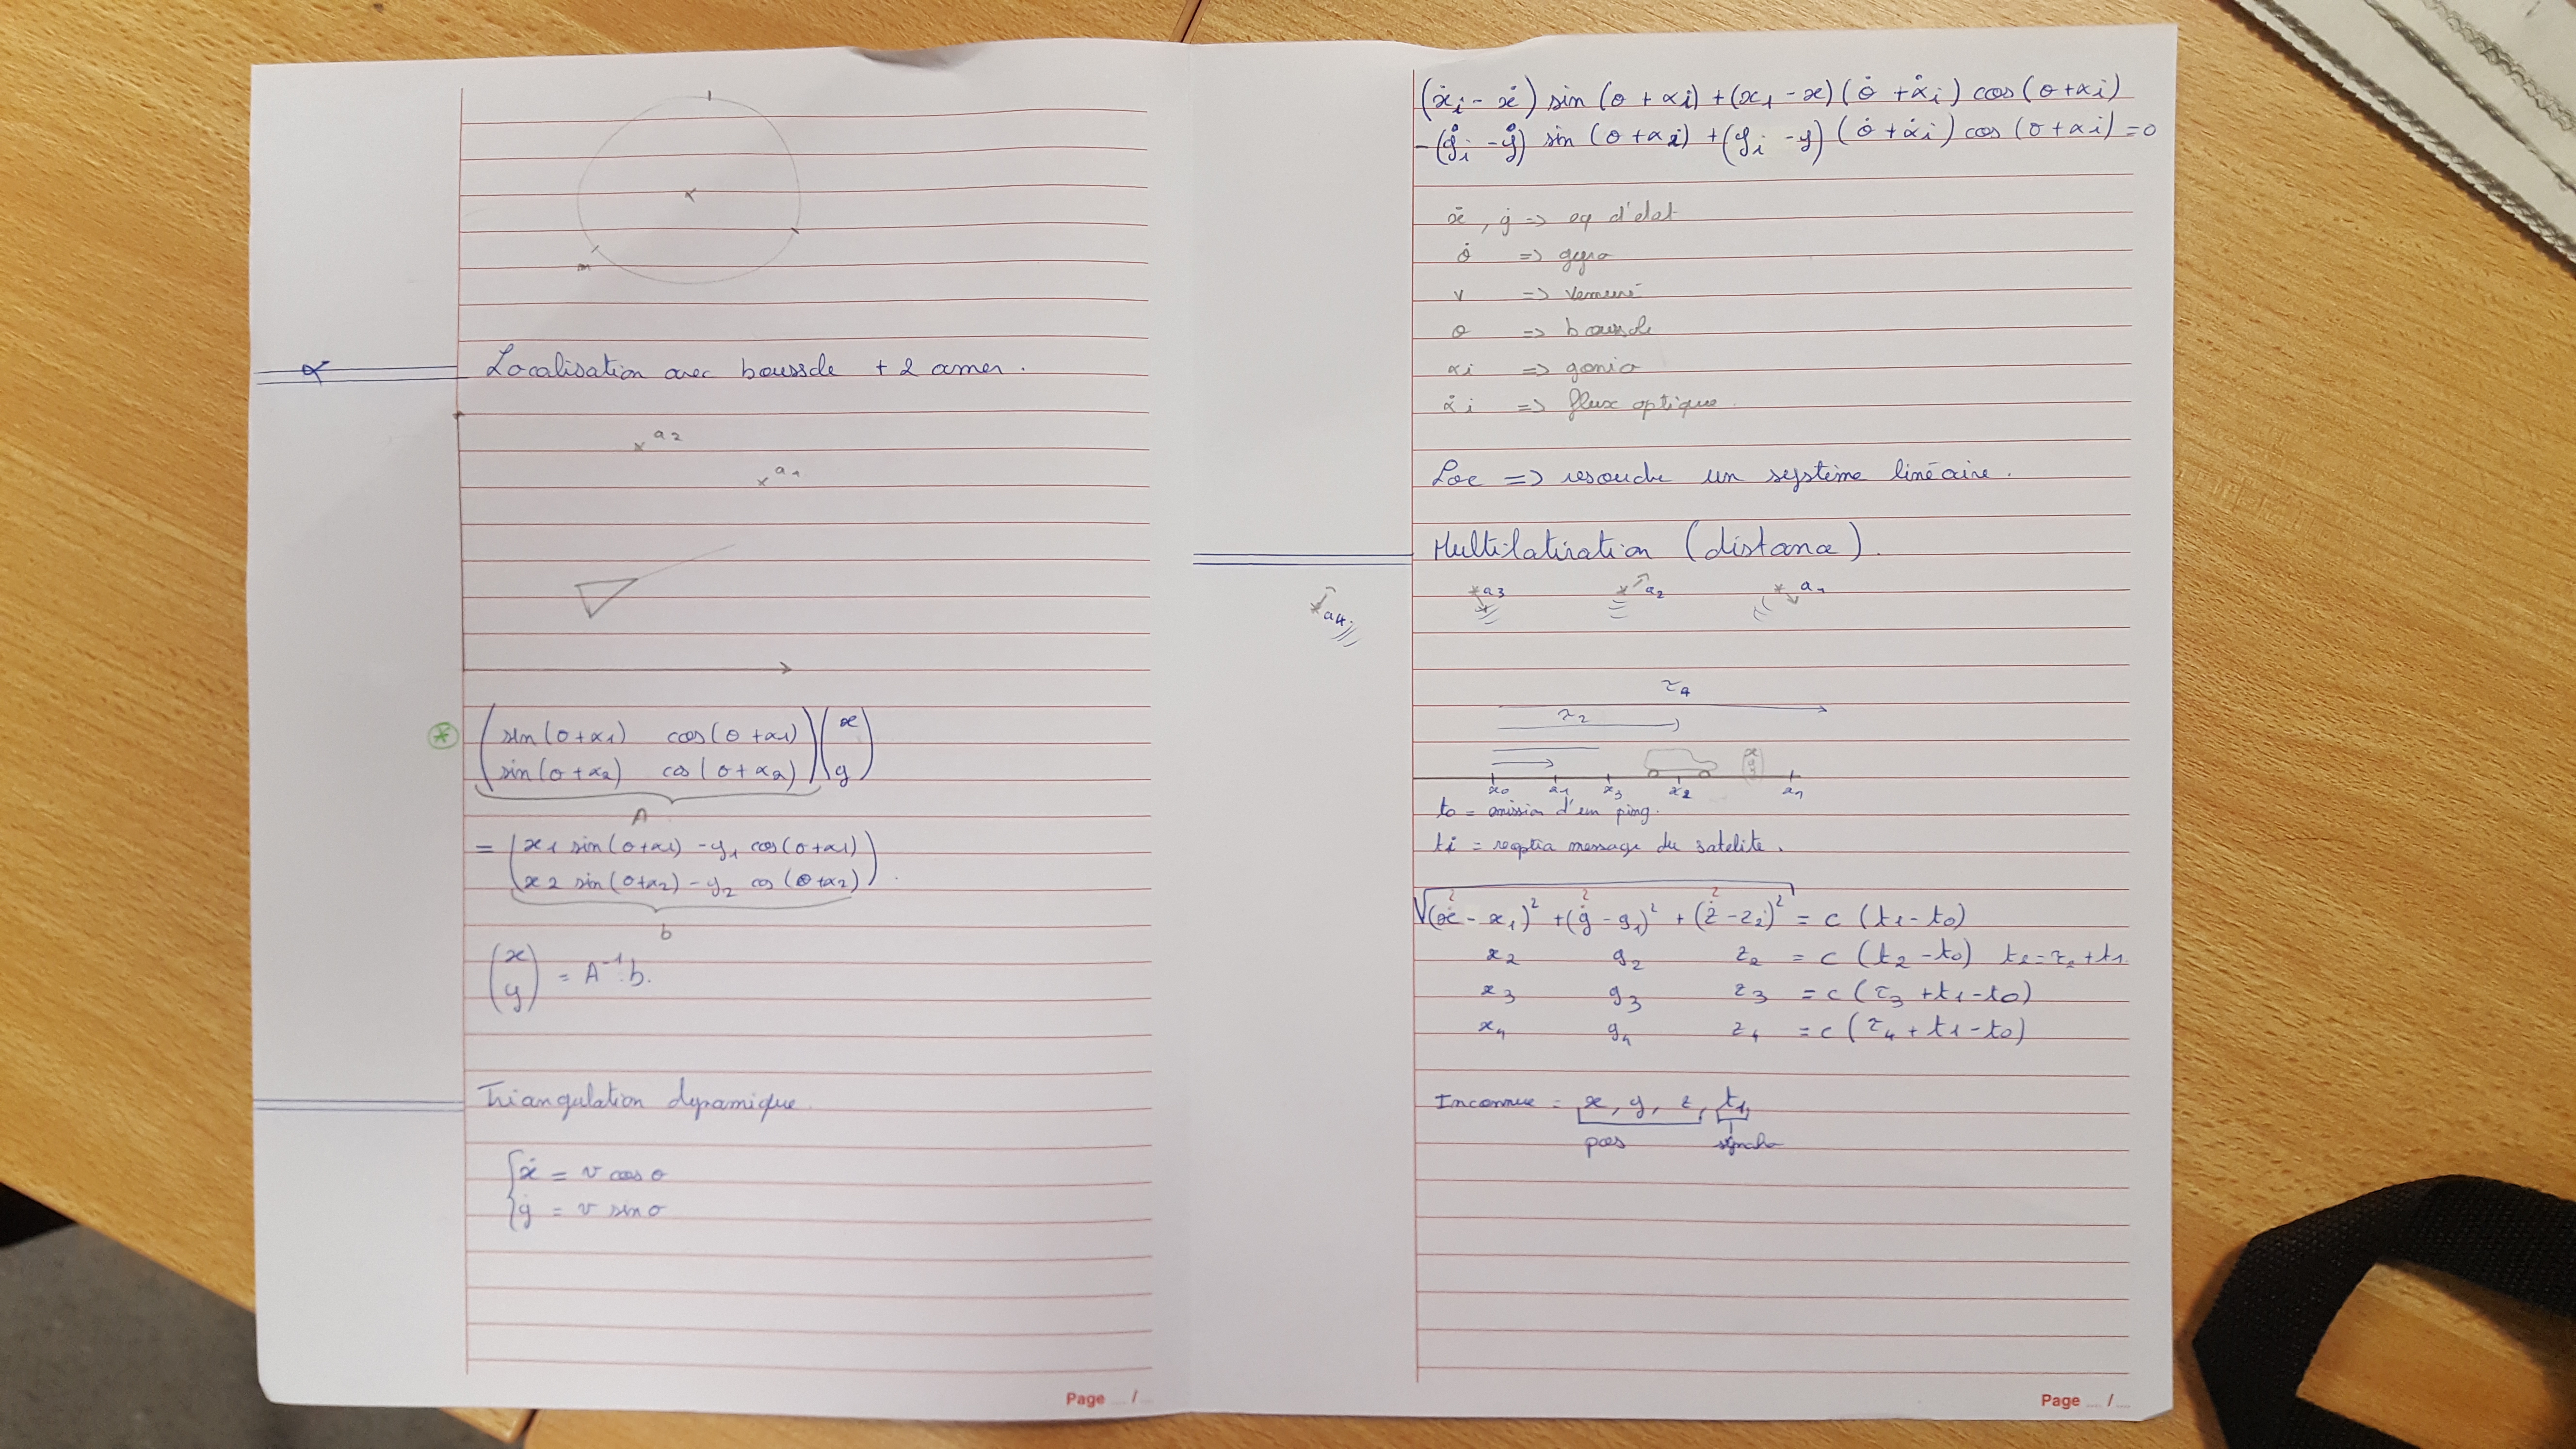 Localisation avec boussole + 2 amer.
a2
a1
* (sin(θ+α1) cos(θ+α1)) (x)
(sin(θ+α2) cos(θ+α2)) (y)
A
= (x1 sin(θ+α1) - y1 cos(θ+α1))
(x2 sin(θ+α2) - y2 cos(θ+α2)).
b
(x)
(y) = A⁻¹.b.
Triangulation dynamique
{ẋ = v cos θ
{ẏ = v sin θ
Page .... / ....
(ẋi - ẋ) sin (θ + αi) + (x1 - x) (θ̇ + α̇i) cos (θ + αi)
- (ẏi - ẏ) sin (θ + αi) + (yi - y) (θ̇ + α̇i) cos (θ + αi) = 0
ẋ, ẏ => eq d'etat
θ̇ => gyro
v =>
θ => boussole
αi => gonio
α̇i => flux optique.
Loc => resoudre un système linéaire.
Multilatération (distance).
a4 a3 a2 a1
τ4
τ2
x0 x1 x3 x2 x4
t0 = emission d'un ping.
ti = message du satelite.
√(x - x1)² + (y - y1)² + (z - z1)² = c (t1 - t0)
x2 y2 z2 = c (t2 - t0) t2 = τ2 + t1.
x3 y3 z3 = c (τ3 + t1 - t0)
x4 y4 z4 = c (τ4 + t1 - t0)
Inconnue = x, y, z, t1,
pos synchro
Page .... / ....